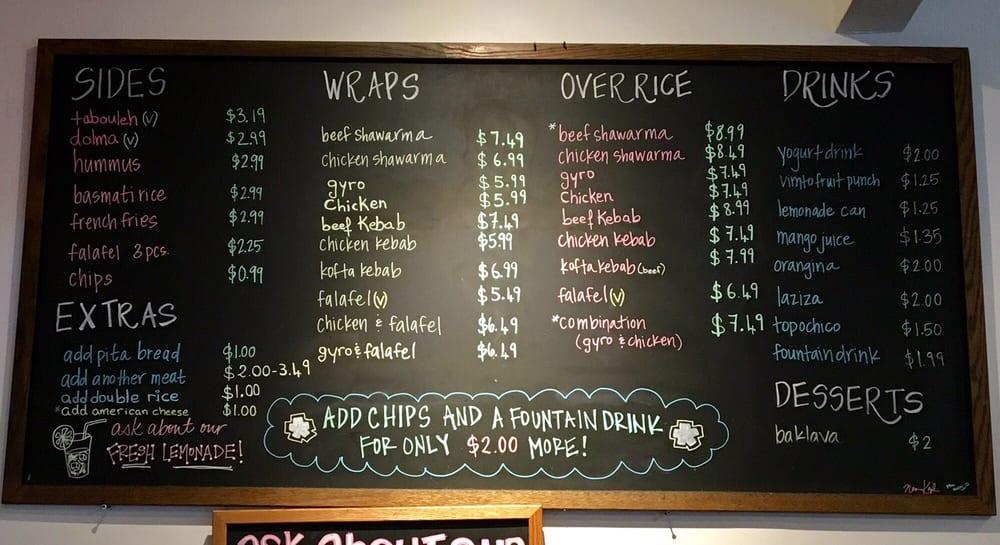 SIDES
tabouleh (v) $3.19
dolma (v) $2.99
hummus $2.99
basmati rice $2.99
french fries $2.99
falafel 3 pcs. $2.25
chips $0.99
EXTRAS
add pita bread $1.00
add another meat $2.00-3.49
add double rice $1.00
*add american cheese $1.00
ask about our
FRESH LEMONADE!
WRAPS
beef shawarma $7.49
chicken shawarma $6.99
gyro $5.99
Chicken $5.99
beef Kebab $7.49
chicken kebab $5.99
kofta kebab $6.99
falafel (v) $5.49
chicken & falafel $6.49
gyro & falafel $6.49
OVER RICE
*beef shawarma $8.99
chicken shawarma $8.49
gyro $7.49
Chicken $7.49
beef Kebab $8.99
chicken kebab $7.49
kofta kebab (beef) $7.99
falafel (v) $6.49
*combination $7.49
(gyro & chicken)
ADD CHIPS AND A FOUNTAIN DRINK
FOR ONLY $2.00 MORE!
DRINKS
yogurt drink $2.00
vimto fruit punch $1.25
lemonade can $1.25
mango juice $1.35
orangina $2.00
laziza $2.00
topochico $1.50
fountain drink $1.99
DESSERTS
baklava $2
ask about our